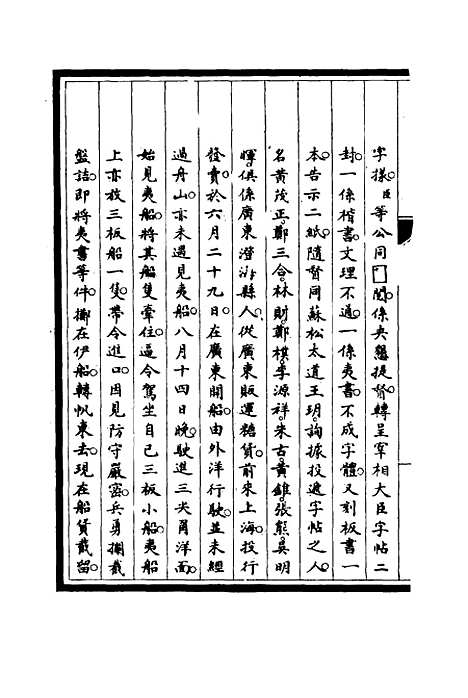 字樣臣等公同□閱係央懇提督轉呈宰相大臣字帖二
封一係楷書文理不通一係夷書不成字體又刻板書一
本告示二紙隨督同蘇松太道王玥詢據投遞字帖之人
名黃茂正鄭三合林財鄭棋李源祥朱古黃錐張熊吳明
暉俱係廣東澄海縣人從廣東販運糖貨前來上海投行
發賣於六月二十九日在廣東開船由外洋行駛並未經
過舟山亦未遇見夷船八月十四日晚駛進三夾甪洋面
始見夷船將其船隻牽住逼令駕坐自己三板小船夷船
上亦放三板船一隻帶令進口因見防守嚴密兵勇攔截
盤詰即將夷書等件擲在伊船轉帆東去現在船貨截留